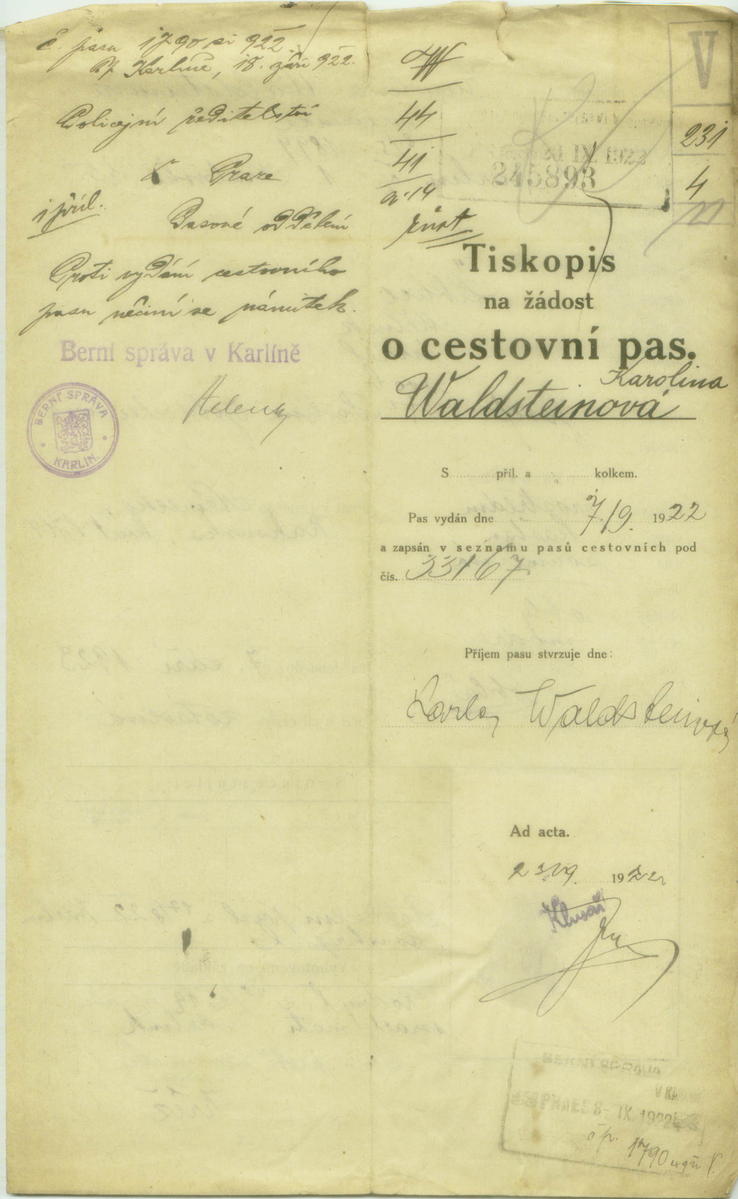 č. pasu 1790 si 922.
V Karlíně, 18. září 922.
Policejní ředitelství
v Praze
1 příl.
Pasové oddělení
Proti vydání cestovního
pasu nečiní se námitek.
Berní správa v Karlíně
BERNÍ SPRÁVA
KARLÍN
W
44
41
a-14
V
231
4
IX. 1922
245893
Tiskopis
na žádost
o cestovní pas.
Karolina
Waldsteinová
S příl. a kolkem.
Pas vydán dne 7/9. 1922
a zapsán v seznamu pasů cestovních pod
čís. 33167
Příjem pasu stvrzuje dne:
Karla Waldsteinová
Ad acta.
1922
BERNÍ SPRÁVA
V KA
8- IX. 1922
čp. 1790